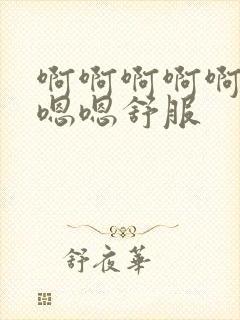 啊啊啊啊啊
嗯嗯舒服
舒夜华